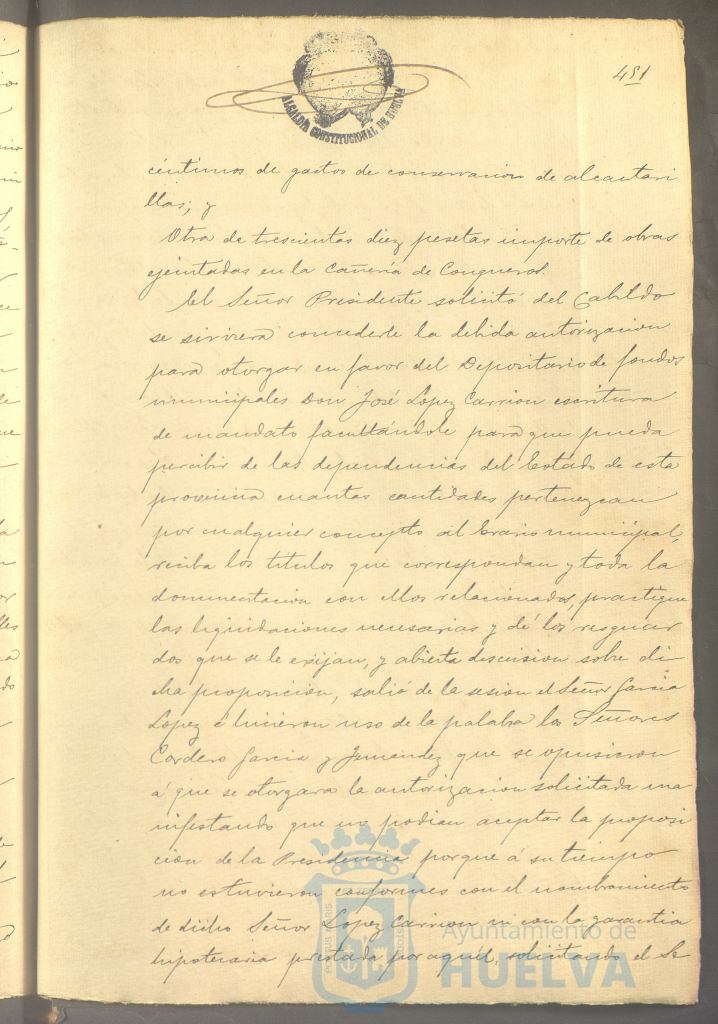 451
ALCALDIA CONSTITUCIONAL DE HUELVA
céntimos de gastos de conservacion de alcantari
llas; y
Otra de trescientas diez pesetas importe de obras
ejecutadas en la cañería de Conqueros.
El Señor Presidente solicitó del Cabildo
se sirviera concederle la debida autorizacion
para otorgar en favor del Depositario de fondos
municipales Don José Lopez Carrion escritura
de mandato facultándole para que pueda
percibir de las dependencias del Estado de esta
provincia cuantas cantidades pertenezcan
por cualquier concepto al Erario municipal,
reciba los titulos que correspondan y toda la
documentacion con ellos relacionados, practique
las liquidaciones necesarias y dé los resguar
dos que se le exijan, y abierta discusion sobre di
cha proposicion, salió de la sesion el Señor Garcia
Lopez é hicieron uso de la palabra los Señores
Cordero Garcia y Jimenez que se opusieron
á que se otorgara la autorizacion solicitada ma
nifestando que no podian aceptar la proposi
cion de la Presidencia porque á su tiempo
no estuvieron conformes con el nombramiento
de dicho Señor Lopez Carrion ni con la garantia
hipotecaria prestada por aquél, solicitando el Se
Ayuntamiento de
HUELVA
PORTUS MARIS